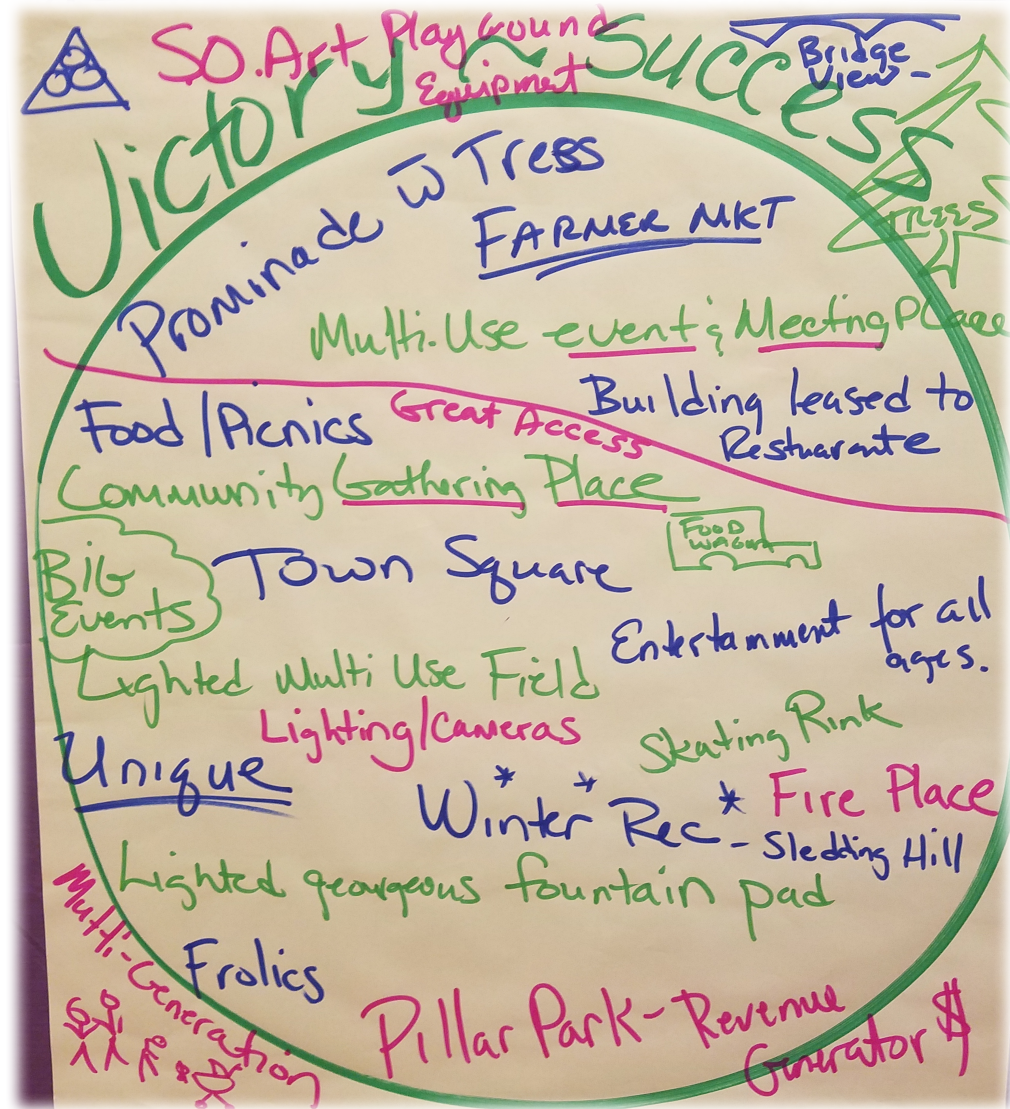 S.O. Art Playground
Equipment
Bridge
View-
Victory ~ Success
TREES
Prominade w Tress
FARMER MKT
Multi-Use event & Meeting Place
Food/Picnics
Great Access
Building leased to
Restuarante
Community Gathering Place
FOOD
WAGON
BIG
Events
Town Square
Entertainment for all
ages.
Lighted Multi Use Field
Lighting/Cameras
Skating Rink
Unique
Winter Rec - Sledding Hill
Fire Place
Lighted georgeous fountain pad
Multi-Generation
Frolics
Pillar Park - Revenue
Generator $